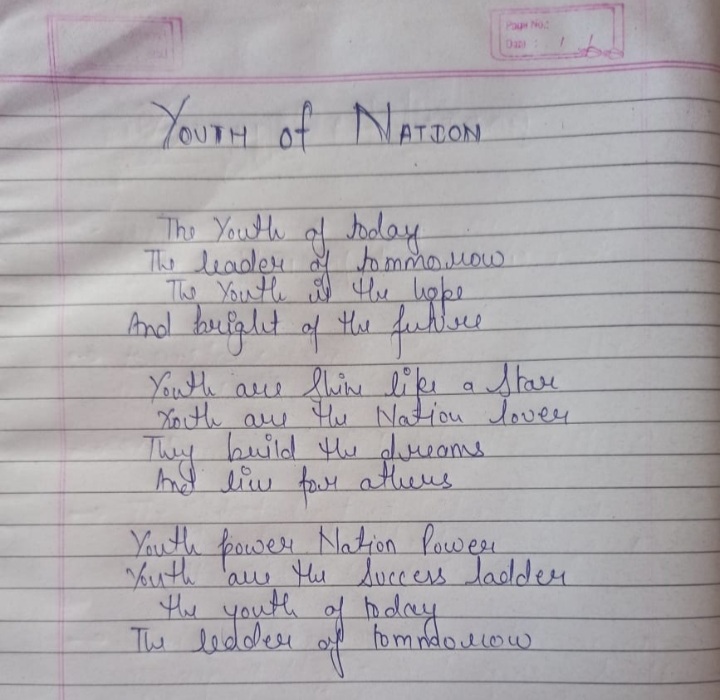 Page No.:
Date :
YOUTH of NATION
The Youth of today
The leader of tommorrow
The Youth is the hope
And bright of the future
Youth are Shine like a Star
Youth are the Nation lover
They build the dreams
And live for others
Youth power Nation Power
Youth are the Success ladder
the youth of today
The ledder of tommdorrow